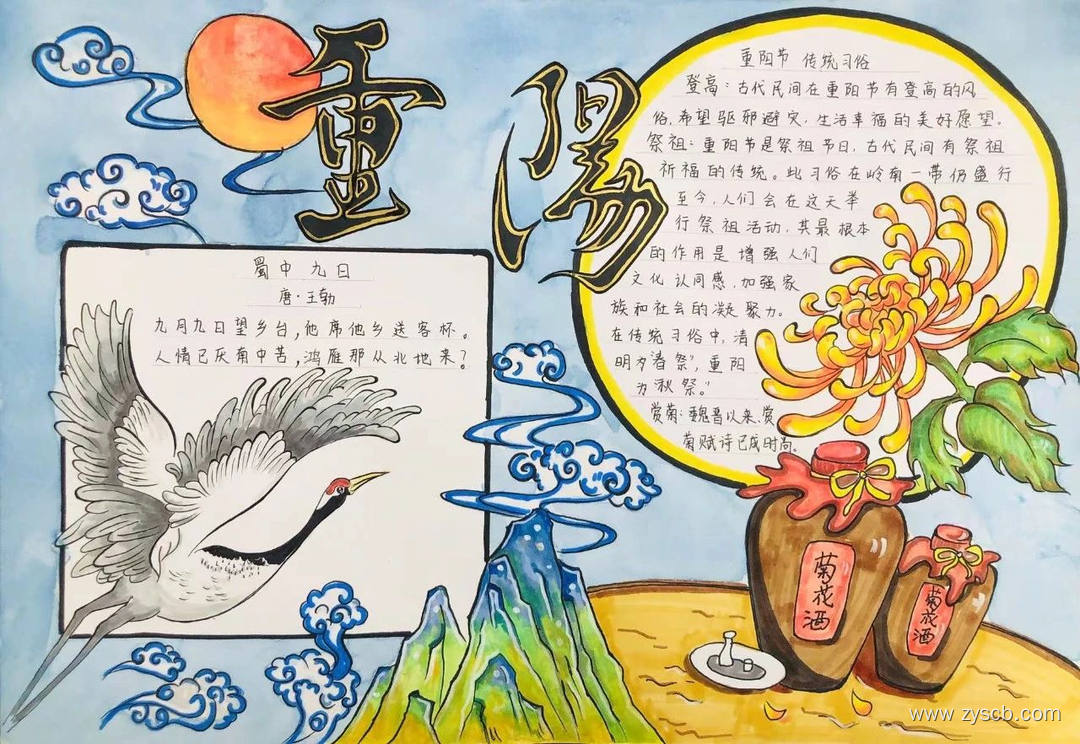 重陽
蜀中九日
唐·王勃
九月九日望乡台,他席他乡送客杯。
人情已厌南中苦,鸿雁那从北地来?
重阳节 传统习俗
登高:古代民间在重阳节有登高的风
俗,希望驱邪避灾,生活幸福的美好愿望。
祭祖:重阳节是祭祖节日,古代民间有祭祖
祈福的传统。此习俗在岭南一带仍盛行
至今,人们会在这天举
行祭祖活动,其最根本
的作用是增强人们
文化认同感,加强家
族和社会的凝聚力。
在传统习俗中,清
明为"春祭",重阳
为"秋祭。"
赏菊:魏晋以来,赏
菊赋诗已成时尚。
菊花酒
菊花酒
www.zyscb.com